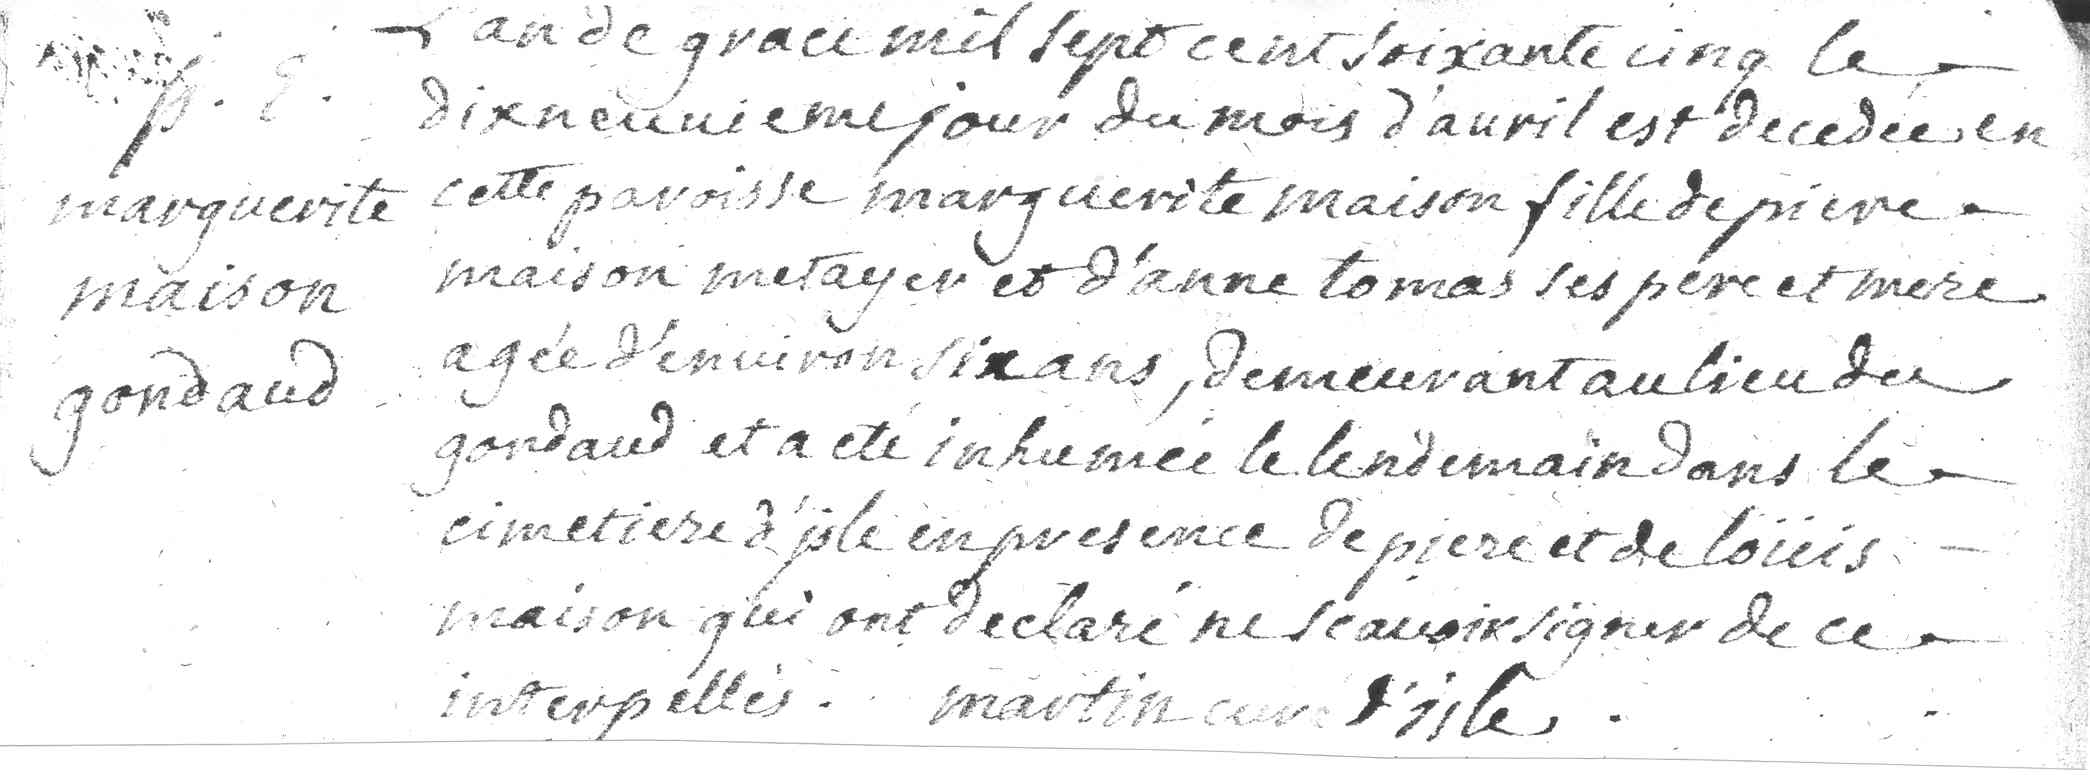 L'an de grace mil sept cent soixante cinq le
dixneuuieme jour du mois d'auril est decedée en
cette paroisse marguerite maison fille de piere
maison metayer et d'anne tomas ses pere et mere
agée d'enuiron six ans, demeurant au lieu du
gondaud et a eté inhumée le lendemain dans le
cimetiere d'isle en presence de piere et de loüis
maison qui ont declaré ne scauoir signer de ce
interpellés. martin curé d'isle.
marguerite
maison
gondaud